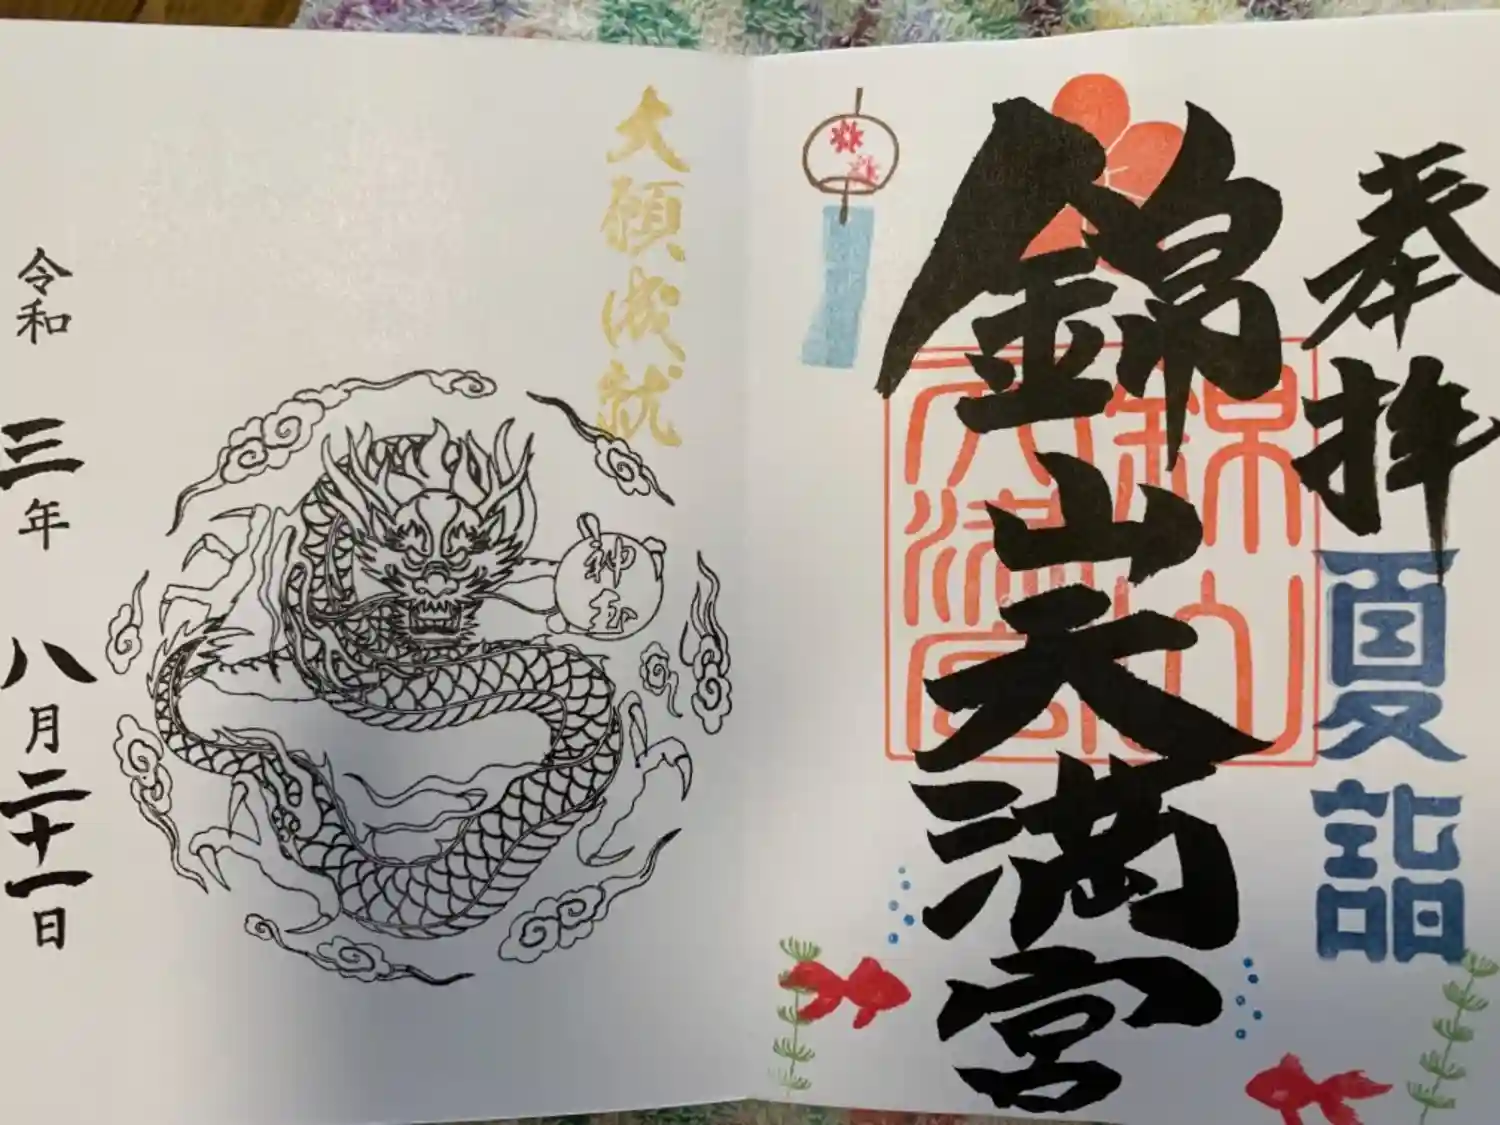 奉拝
夏詣
錦山天満宮
錦山
天満宮
大願成就
神玉
令和三年八月二十一日